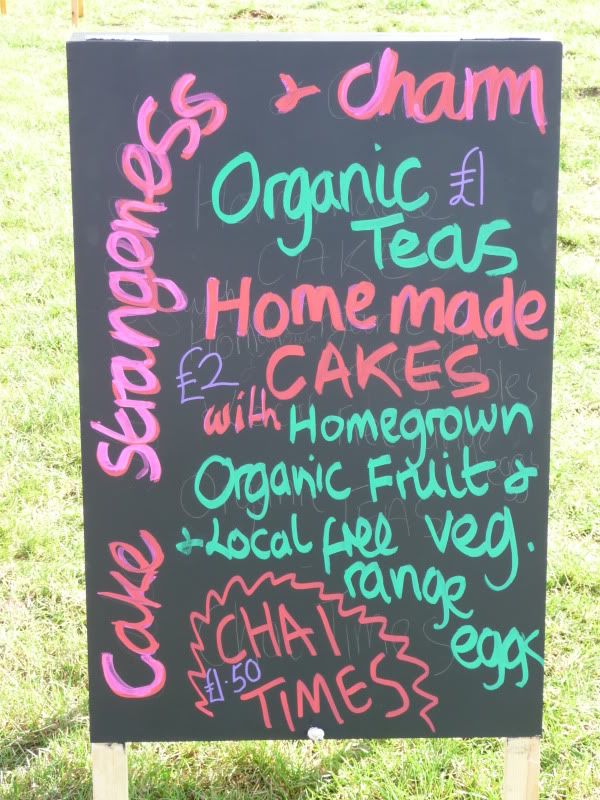 Cake Strangeness
& Charm
Organic £1
Teas
Homemade
£2 CAKES
with Homegrown
Organic Fruit &
& Local free veg.
range
eggs
CHAI
£1.50
TIMES